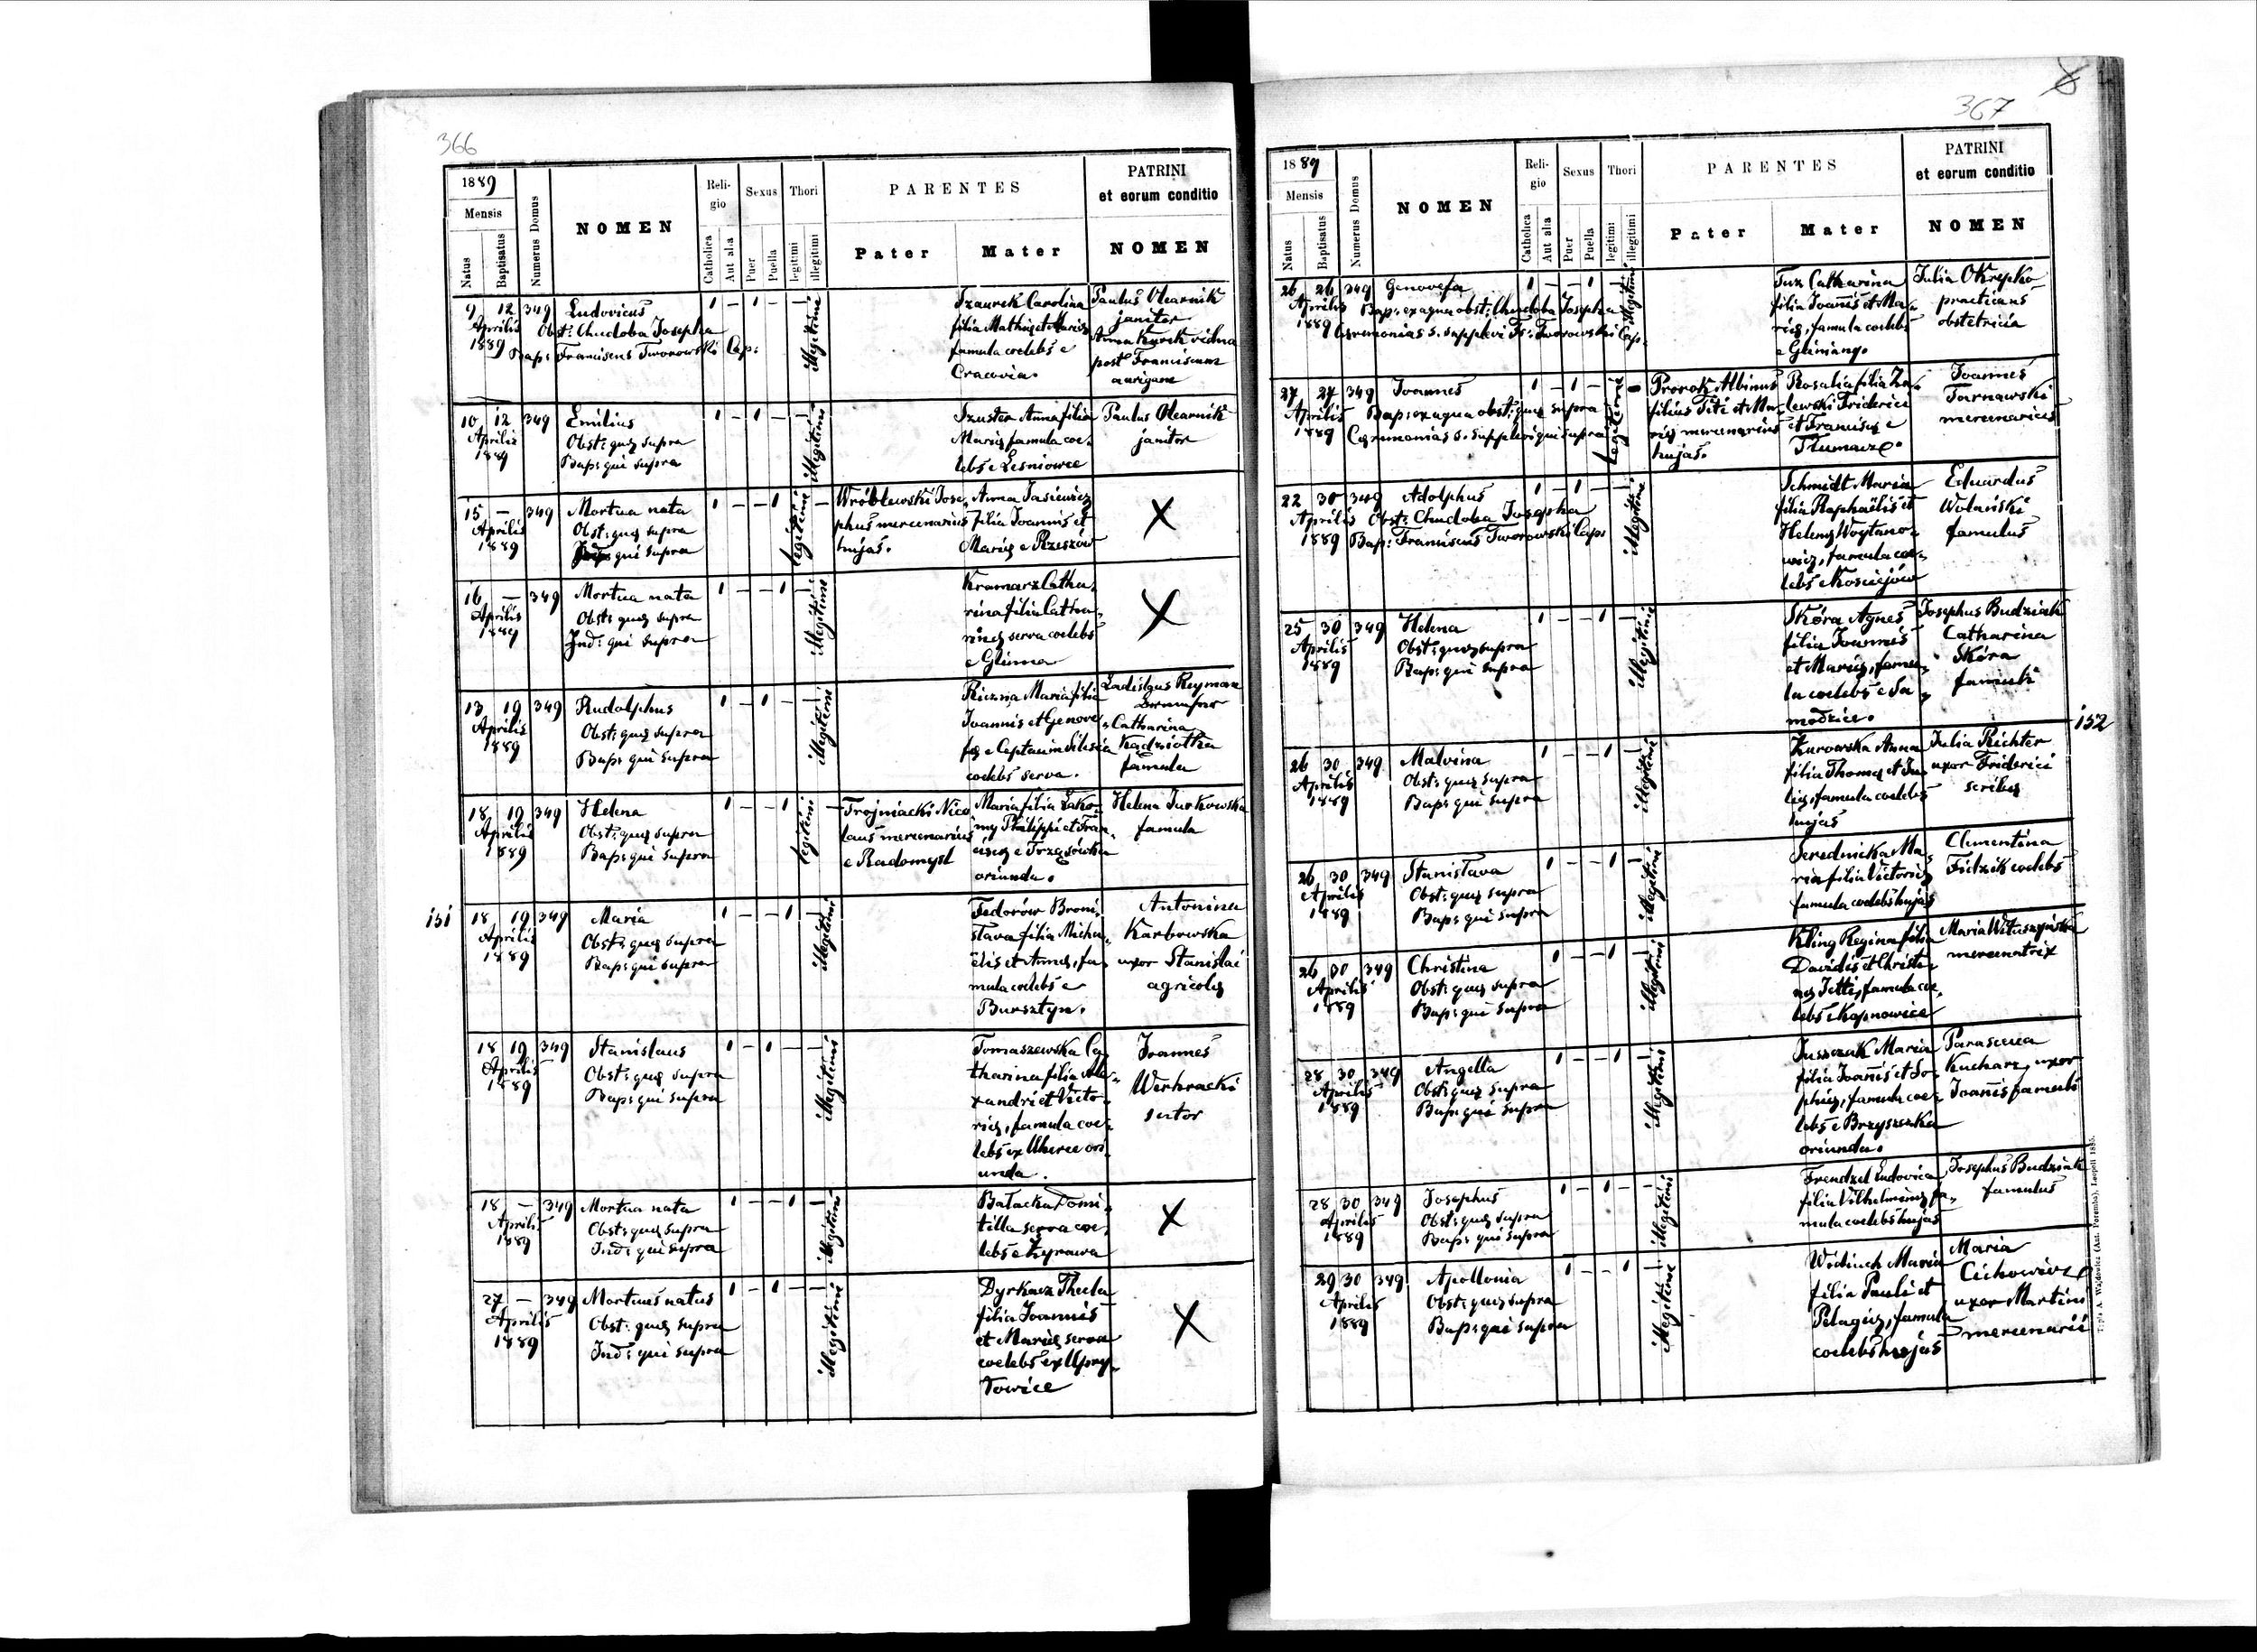 366
1889
Mensis
Natus
Baptisatus
Numerus Domus
NOMEN
Reli-
gio
Catholica
Aut alia
Sexus
Puer
Puella
Thori
legitimi
illegitimi
PARENTES
Pater
Mater
PATRINI
et eorum conditio
NOMEN
9 12 349 Ludovicus 1 – 1 – –
Aprilis Obst: Chudoba Josepha
1889 Bap: Franciscus Tworowski Cap:
illegitimi
filia Mathiæ et Mariæ
famula coelebs e
Cracovia.
Paulus Olearnik
janitor
Anna Kurek vidua
post Franciscum
aurigam
10 12 349 Emilius 1 – 1 – –
Aprilis Obst: quæ supra
1889 Bap: qui supra
illegitimi
Szuster Anna filia
Mariæ famula coe-
lebs e Lesniowce
Paulus Olearnik
janitor
15 – 349 Mortua nata 1 – – 1 –
Aprilis Obst: quæ supra
1889 qui supra
legitimi
Wróblewski Jose-
phus mercenarius
hujas.
Anna Jasiewicz
filia Joannis et
Mariæ e Rzeszów
X
16 – 349 Mortua nata 1 – – 1 –
Aprilis Obst: quæ supra
1889 Ind: qui supra
illegitimi
Kramarz Catha-
rina filia Catha-
rinæ serva coelebs
e Glinna
X
13 19 349 Rudolphus 1 – 1 – –
Aprilis Obst: quæ supra
1889 Bap: qui supra
illegitimi
Maria filia
Joannis et Genove-
fæ e Silesia
coelebs serva.
Ladislaus Reyman
Catharina
Kadziołka
famula
18 19 349 Helena 1 – – 1 –
Aprilis Obst: quæ supra
1889 Bap: qui supra
legitimi
Trojniacki Nico-
laus mercenarius
e Radomysl
Maria filia Łako-
my Philippi et Fran-
ciscæ e Trzęsówka
oriunda.
Helena Jurkowska
famula
151
18 19 349 Maria 1 – – 1 –
Aprilis Obst: quæ supra
1889 Bap: qui supra
illegitimi
Fedorów Broni-
slava filia Micha-
ëlis et Annæ, fa-
mula coelebs e
Bursztyn.
Antonina
Karbowska
uxor Stanislai
agricolæ
18 19 349 Stanislaus 1 – 1 – –
Aprilis Obst: quæ supra
1889 Bap: qui supra
illegitimi
Tomaszewska Ca-
tharina filia Ale-
xandri et Victo-
riæ, famula coe-
lebs ex Uherce ori-
unda.
Joannes
Werhracki
sutor
18 – 349 Mortua nata 1 – – 1 –
Aprilis Obst: quæ supra
1889 Ind: qui supra
illegitimi
Bałacka Domi-
tilla serva coe-
lebs e Żyrawa
X
27 – 349 Mortuus natus 1 – 1 – –
Aprilis Obst: quæ supra
1889 Ind: qui supra
illegitimi
Dyrkacz Thecla
filia Joannis
et Mariæ serva
coelebs ex
X
367
1889
Mensis
Natus
Baptisatus
Numerus Domus
NOMEN
Reli-
gio
Catholica
Aut alia
Sexus
Puer
Puella
Thori
legitimi
illegitimi
PARENTES
Pater
Mater
PATRINI
et eorum conditio
NOMEN
26 26 349 Genovefa 1 – – 1 –
Aprilis Bap: ex aqua obst: Chudoba Josepha
1889 Ceremonias s. supplevi Fr: Tworowski Cap:
illegitimi
Tuz Catharina
filia Joañis et Ma-
riæ, famula coelebs
e Gliniany.
Julia Okrepko
practicans
obstetricia
27 27 349 Joannes 1 – 1 –
Aprilis Bap: ex aqua obst: quæ supra
1889 Ceremonias s. supplevi qui supra
legitimi
Prorok Albinus
filius Titi et Ma-
riæ mercenarius
hujas.
Rosalia filia Za-
lewski Friderici
et Franciscæ e
Tłumacz.
Joannes
Tarnawski
mercenarius
22 30 349 Adolphus 1 – 1 – –
Aprilis Obst: Chudoba Josepha
1889 Bap: Franciscus Tworowski Cap:
illegitimi
Schmidt Maria
filia Raphaëlis et
Helenæ Woytano-
wicz, famula coe-
lebs e Kosciejów
Eduardus
Wolański
famulus
25 30 349 Helena 1 – – 1 –
Aprilis Obst: quæ supra
1889 Bap: qui supra
illegitimi
Skóra Agnes
filia Joannis
et Mariæ, famu-
la coelebs e Ja-
modzice.
Josephus Budziak
Catharina
Skóra
famuli
152
26 30 349 Malvina 1 – – 1 –
Aprilis Obst: quæ supra
1889 Bap: qui supra
illegitimi
Żurowska Anna
filia Thomæ et Ju-
liæ, famula coelebs
hujas
Julia Richter
uxor Friderici
scribæ
26 30 349 Stanislava 1 – – 1 –
Aprilis Obst: quæ supra
1889 Bap: qui supra
illegitimi
Serednicka Ma-
ria filia Victoriæ
famula coelebs hujas
Clementina
Fidzik coelebs
26 30 349 Christina 1 – – 1 –
Aprilis Obst: quæ supra
1889 Bap: qui supra
illegitimi
Kling Regina filia
Davidis et Christi-
næ Jetti, famula coe-
lebs e Kopnowice
Maria Wituszyńska
mercenatrix
28 30 349 Angella 1 – – 1 –
Aprilis Obst: quæ supra
1889 Bap: qui supra
illegitimi
Juszczak Maria
filia Joañis et So-
phiæ, famula coe-
lebs e Brzyszczka
oriunda.
Parasceva
Kucharz, uxor
Joañis famuli
28 30 349 Josephus 1 – 1 – –
Aprilis Obst: quæ supra
1889 Bap: qui supra
illegitimi
Frendzel Ludovica
filia Vilhelminæ fa-
mula coelebs hujas
Josephus Budziak
famulus
29 30 349 Apollonia 1 – – 1 –
Aprilis Obst: quæ supra
1889 Bap: qui supra
illegitimi
Wodinch Maria
filia Pauli et
Pelagiæ, famula
coelebs hujas
Maria
Cichowicz
uxor Martini
mercenarii
Typis A. Wajdowicz (Ant. Poremba), Leopoli 1885.